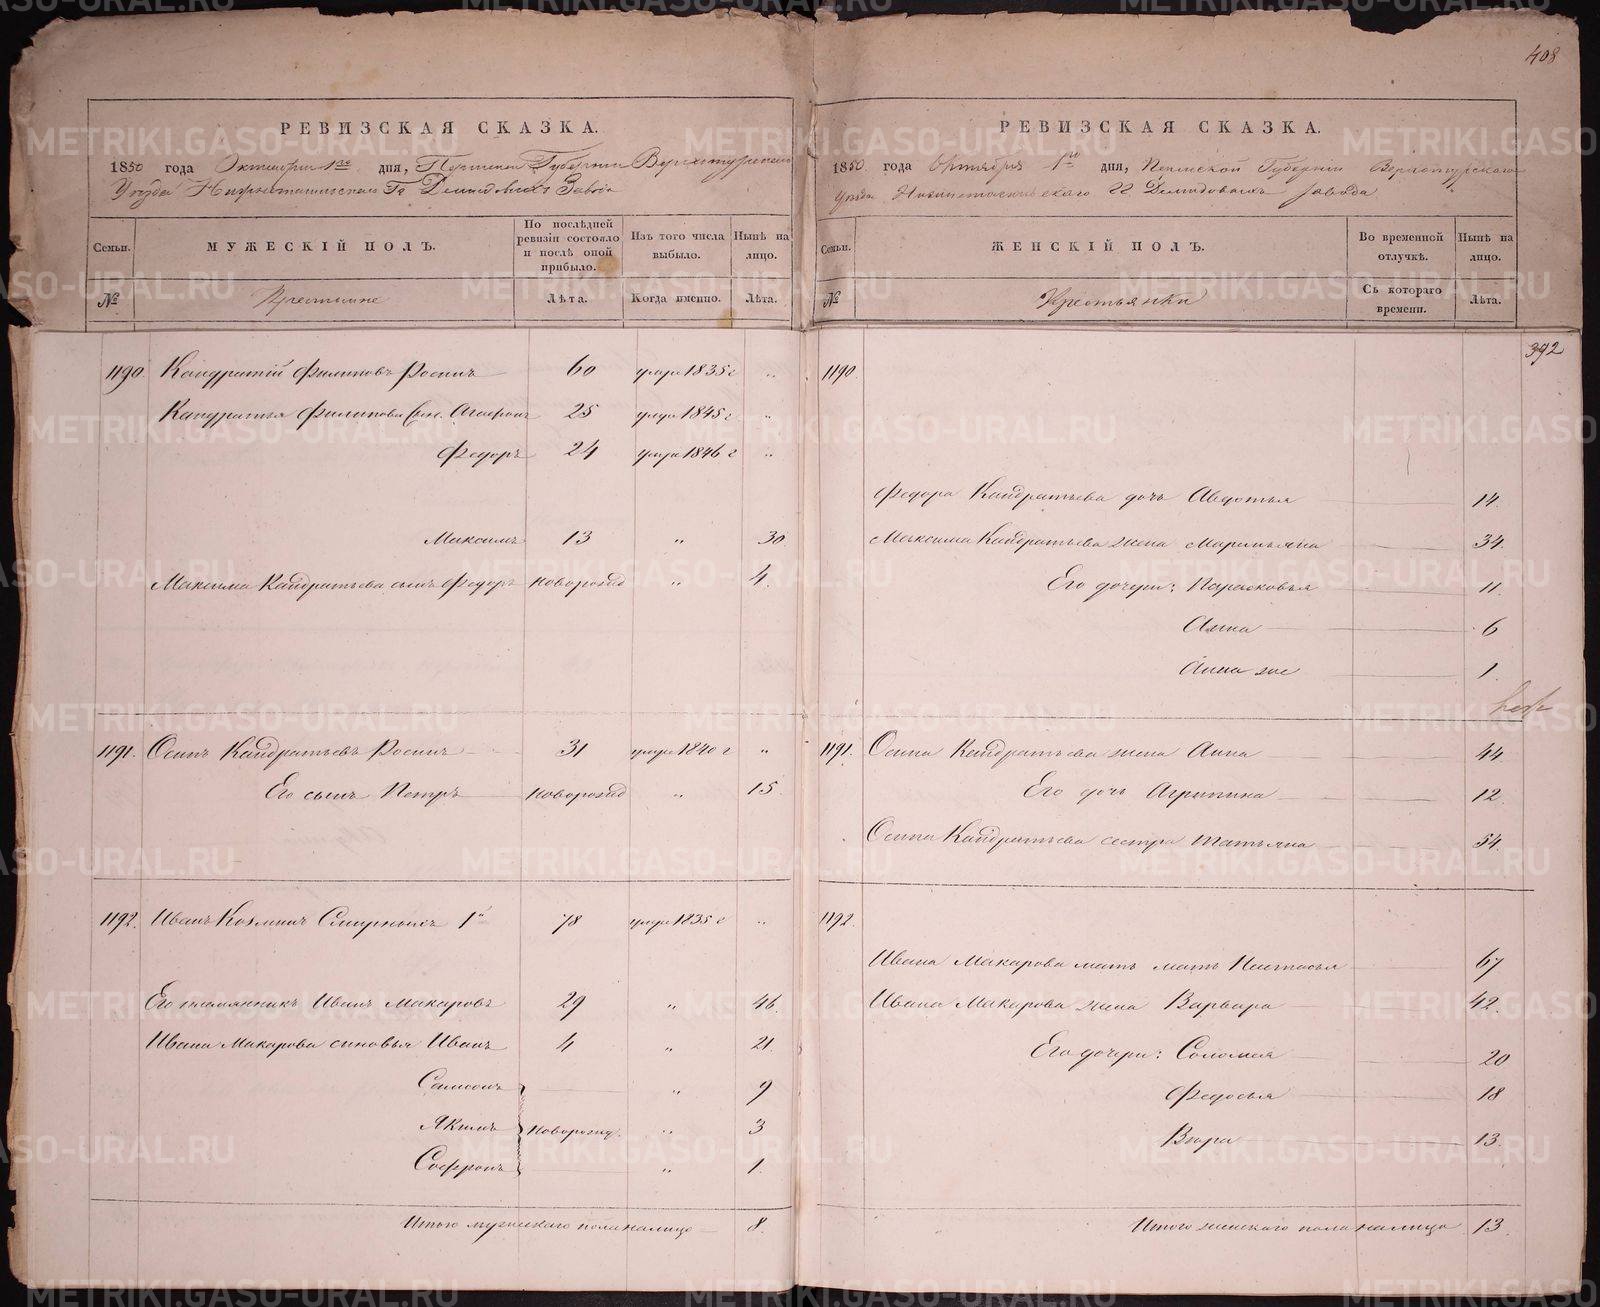 408
РЕВИЗСКАЯ СКАЗКА.
1850 года Октября 1го дня, Пермской Губернiи Верхотурскаго
Уѣзда Нижнетагильскаго Гг Демидовыхъ Завода
Семьи. МУЖЕСКIЙ ПОЛЪ. По послѣдней ревизiи состояло и послѣ оной прибыло. Изъ того числа выбыло. Нынѣ на лицо.
№ Крестьяне Лѣта. Когда именно. Лѣта.
1190. Кандратiй Филиповъ Росинъ 60 умре 1835 г "
Кандратья Филипова сын. Агафонъ 25 умре 1845 г "
Федоръ 24 умре 1846 г "
Максимъ 13 " 30
Максима Кандратьева сынъ Федоръ новорожд " 4.
1191. Осипъ Кандратьевъ Росинъ 31 умре 1840 г "
Его сынъ Петръ новорожд " 15
1192. Иванъ Козминъ Смирныхъ 1й 78 умре 1835 г "
Его племянникъ Иванъ Макаровъ 29 " 46.
Ивана Макарова сыновья Иванъ 4 " 21.
Самсонъ " 9
Якимъ новорожд. " 3
Софронъ " 1.
Итого мужескаго пола налицо 8.
РЕВИЗСКАЯ СКАЗКА.
1850 года Октября 1го дня, Пермской Губернiи Верхотурскаго
Уѣзда Нижнетагильскаго ГГ Демидовыхъ завода
Семьи. ЖЕНСКIЙ ПОЛЪ. Во временной отлучкѣ. Нынѣ на лицо.
№ Крестьянки Съ котораго времени. Лѣта.
392
1190.
Федора Кандратьева дочь Авдотья 14
Максима Кандратьева жена Маремьяна 34.
Его дочери: Парасковья 11.
Анна 6
Анна же 1.
1191. Осипа Кандратьева жена Анна 44
Его дочь Агрипина 12.
Осипа Кандратьева сестра Татьяна 54.
1192.
Ивана Макарова мать мать Настасья 67
Ивана Макарова жена Варвара 42.
Его дочери: Соломея 20
Федосья 18
Вѣра 13.
Итого женскаго пола налицо 13
METRIKI.GASO-URAL.RU